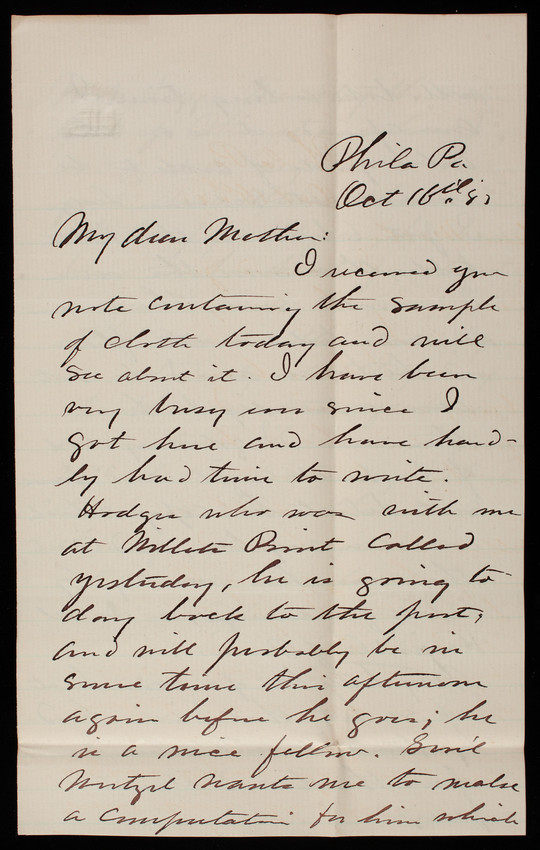 Phila Pa
Oct 16th
My dear Mother:
I received your
note containing the sample
of cloth today and will
see about it. I have been
very busy ever since I
got here and have hard-
ly had time to write.
Hodges who was with me
at Willets Point Called
yesterday, he is going to
day back to the post,
and will probably be in
some time this afternoon
again before he goes; he
is a nice fellow. Gen'l
wants me to make
a computation for him which